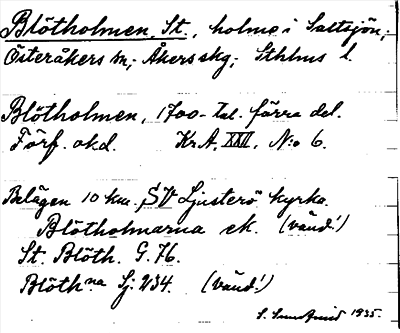 Blötholmen, St., holme i Saltsjön,
Österåkers sn; Åkers skg; Sthlms l.
Blötholmen, 1700-tal. förra del.
Förf. okd. Kr.A. XXII. N:o 6.
Belägen 10 km. SV Ljusterö kyrka.
Blötholmarna ek. (vänd!)
St. Blöth. G. 76.
Blöthna Sj. 234. (vänd!)
1935.